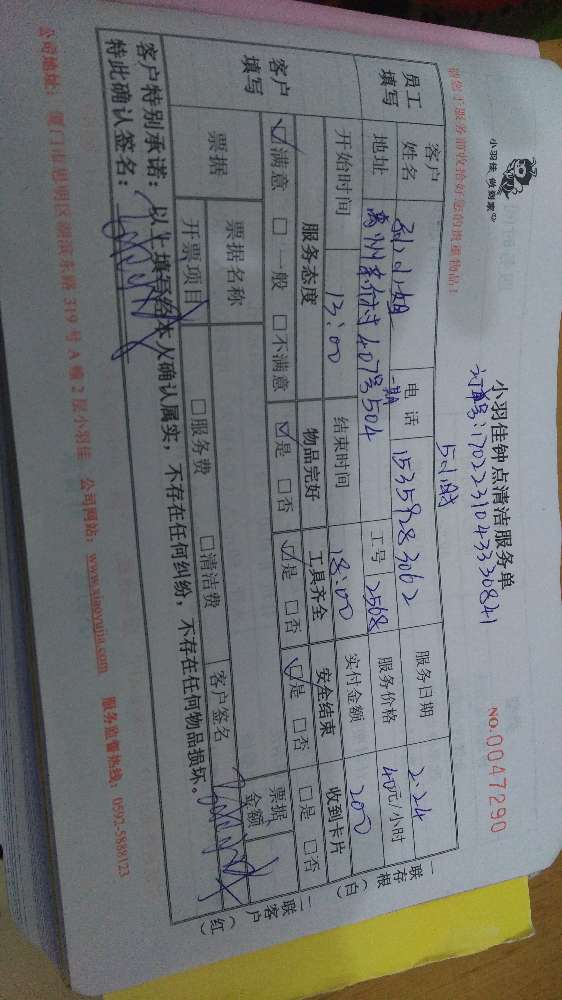 小羽佳 做到家
小羽佳钟点清洁服务单
NO.0047290
订单号:1702231043330841
请您于服务前收拾好您的贵重物品!
5小时
员工填写
客户姓名 孙小姐 电话 15359283062 服务日期 2.24
地址 禹洲 村 407号504 一期 工号 2568 服务价格 40元/小时
开始时间 13:00 结束时间 18:00 实付金额 200
客户填写
服务态度 物品完好 工具齐全 安全结束 收到卡片
☑满意 □一般 □不满意 ☑是 □否 ☑是 □否 ☑是 □否 □是 □否
票据 票据名称 客户签名 票据金额
开票项目 □服务费 □清洁费
客户特别承诺:以上填写经本人确认属实,不存在任何纠纷,不存在任何物品损坏。
特此确认签名:
公司地址:厦门市思明区湖滨东路319号A幢2层小羽佳 公司网站:www.xiaoyujia.com 服务监督热线:0592-5888123
一联存根(白)
二联客户(红)